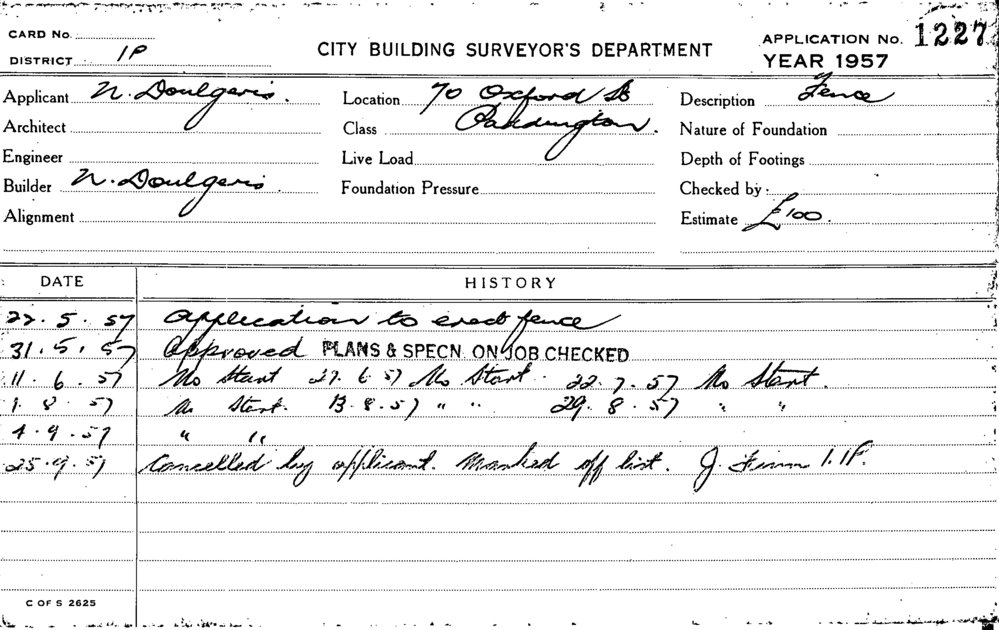 CARD No.
DISTRICT 1P
CITY BUILDING SURVEYOR'S DEPARTMENT
APPLICATION No. 1227
YEAR 1957
Applicant N. Doulgeris.
Architect
Engineer
Builder N. Doulgeris.
Alignment
Location 70 Oxford St
Class Paddington.
Live Load
Foundation Pressure
Description Fence
Nature of Foundation
Depth of Footings
Checked by
Estimate £100.
DATE HISTORY
22. 5. 57 Application to erect fence
31. 5. 57 Approved PLANS & SPECN. ON JOB CHECKED
11. 6. 57 No Start 27. 6. 57 No Start. 22. 7. 57 No Start.
1. 8. 57 No Start. 13. 8. 57 " " 29. 8. 57 " "
4. 9. 57 " "
25. 9. 57 Cancelled by applicant. Marked off list. J. 1.1P.
C OF S 2625